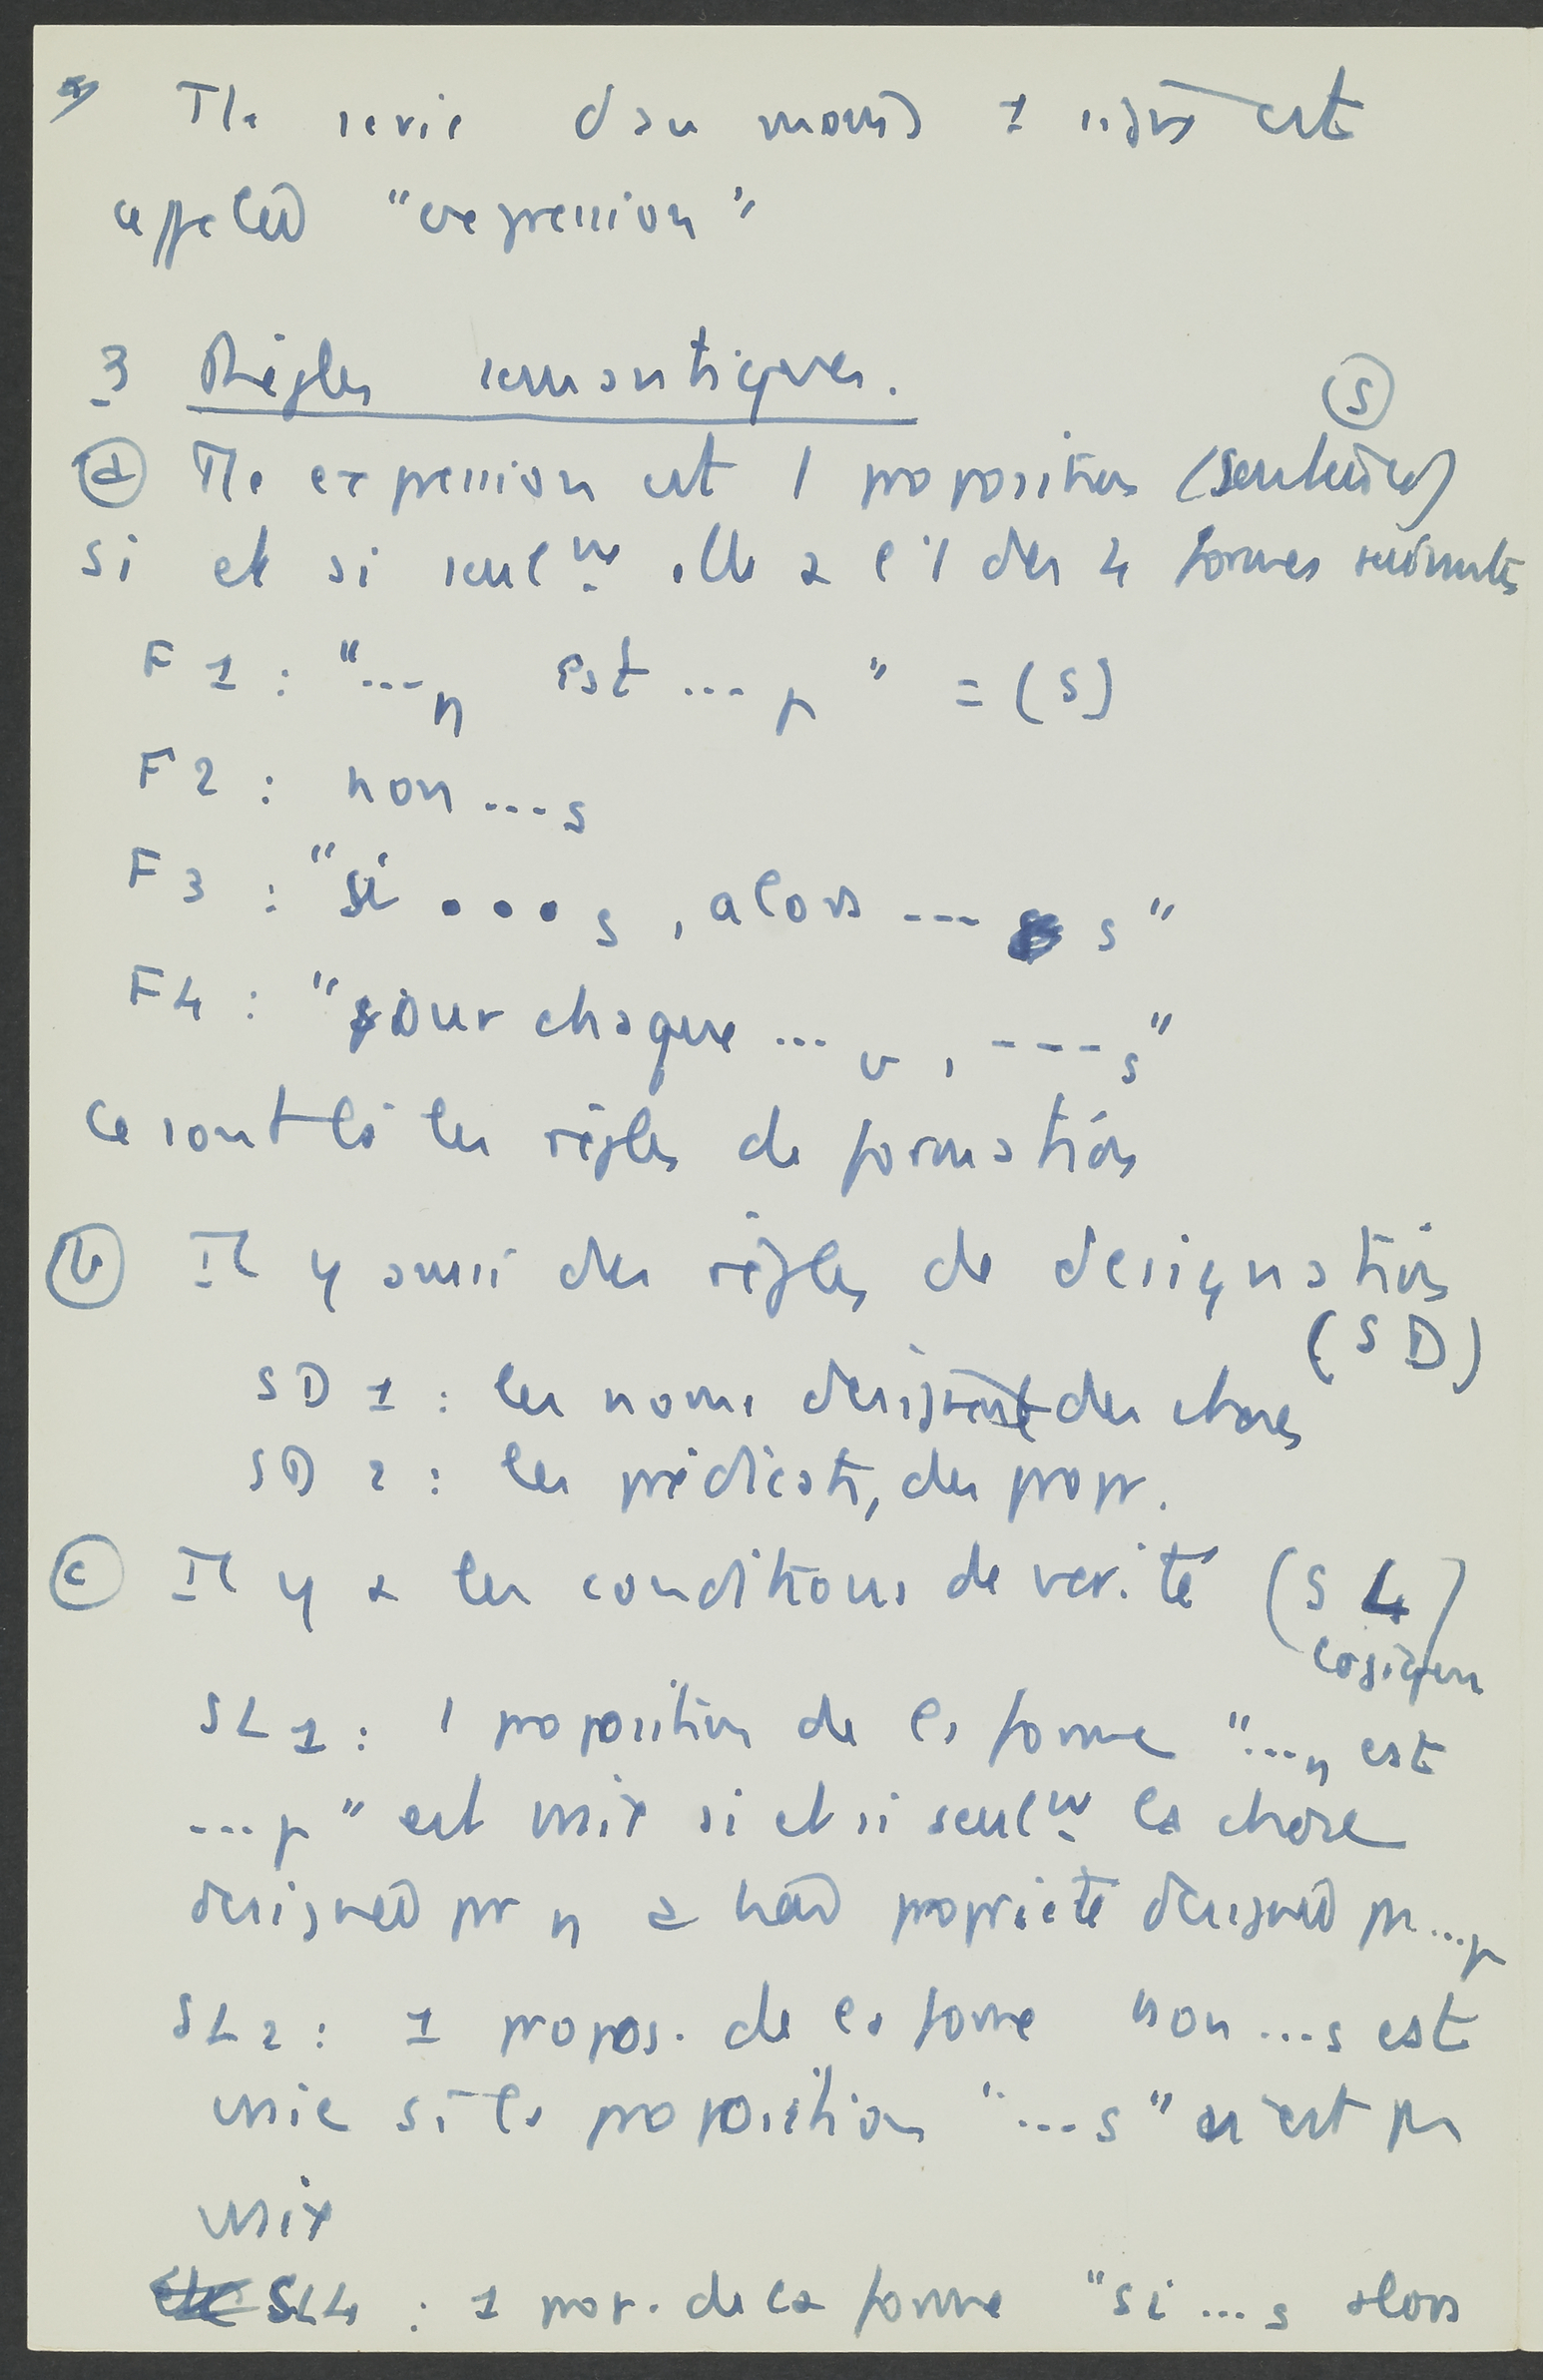 Tte serie d'au moins 1 signe est
appelée "expression"
3 Règles semantiques.
(s)
(a) Tte expression est 1 proposition (sentence)
si et si seulmt elle a l'1 des 4 formes suivantes
F1 : "...n est ... p" = (s)
F2 : non ...s
F3 : "si •••s, alors --- s"
F4 : "pour chaque ...v, ----s"
Ce sont là les règles de formation
(b) Il y aussi des règles de designation
(SD)
SD 1 : les noms designent des choses
SD 2 : les prédicats, des propr.
(c) Il y a les conditions de verité (SL)
logiques
SL1 : 1 proposition de la forme "...n est
...p" est vraie si et si seulmt la chose
designée par n a la propriété designée par ...p
SL2 : 1 propos. de la forme "non ...s est
vraie si la proposition "...s" n'est pas
vraie
SL4 : 1 prop. de la forme "si ...s alors